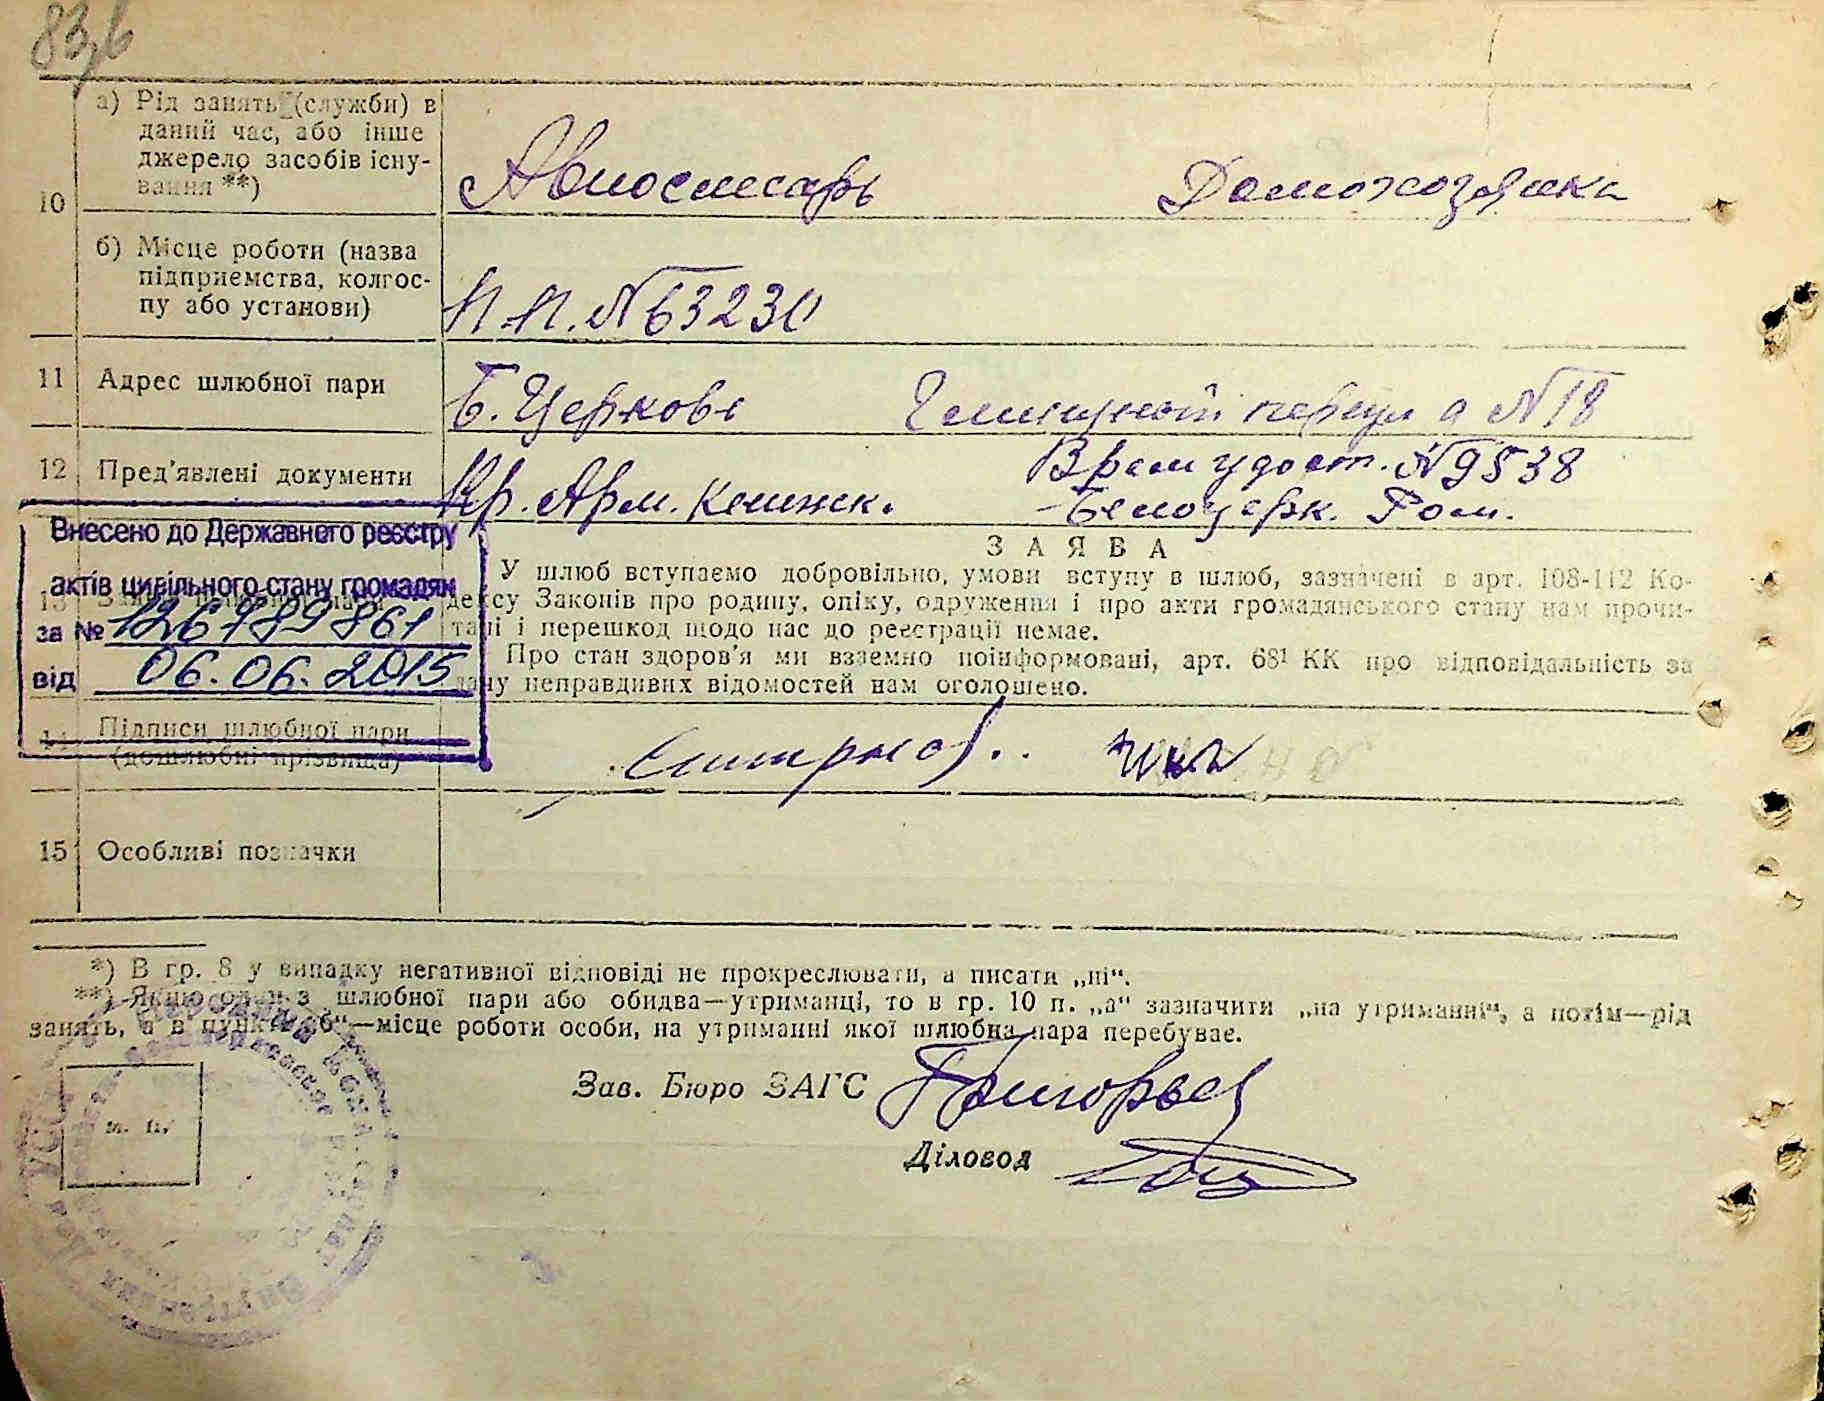 83
а) Рід занять (служби) в
даний час, або інше
джерело засобів існу-
вання **)
10
Авиослесарь Домохозяйка
б) Місце роботи (назва
підприємства, колгос-
пу або установи)
П.П. №63230
11 Адрес шлюбної пари
Б. Церковь №18
12 Пред'явлені документи
Кр. Арм. книжк.
Врем удост. №9538
Белоцерк. Ром.
Внесено до Державного реєстру
актів цивільного стану громадян
за № 126789861
від 06.06.2015
13
ЗАЯВА
У шлюб вступаємо добровільно, умови вступу в шлюб, зазначені в арт. 108-112 Ко-
дексу Законів про родину, опіку, одруження і про акти громадянського стану нам прочи-
тані і перешкод щодо нас до реєстрації немає.
Про стан здоров'я ми взаємно поінформовані, арт. 68¹ КК про відповідальність за
дачу неправдивих відомостей нам оголошено.
14 Підписи шлюбної пари
(дошлюбні прізвища)
15 Особливі позначки
*) В гр. 8 у випадку негативної відповіді не прокреслювати, а писати „ні“.
**) Якщо один з шлюбної пари або обидва—утриманці, то в гр. 10 п. „а“ зазначити „на утриманні“, а потім—рід
занять, а в пункті „б“—місце роботи особи, на утриманні якої шлюбна пара перебуває.
Зав. Бюро ЗАГС Григорьев
Діловод
м. п.